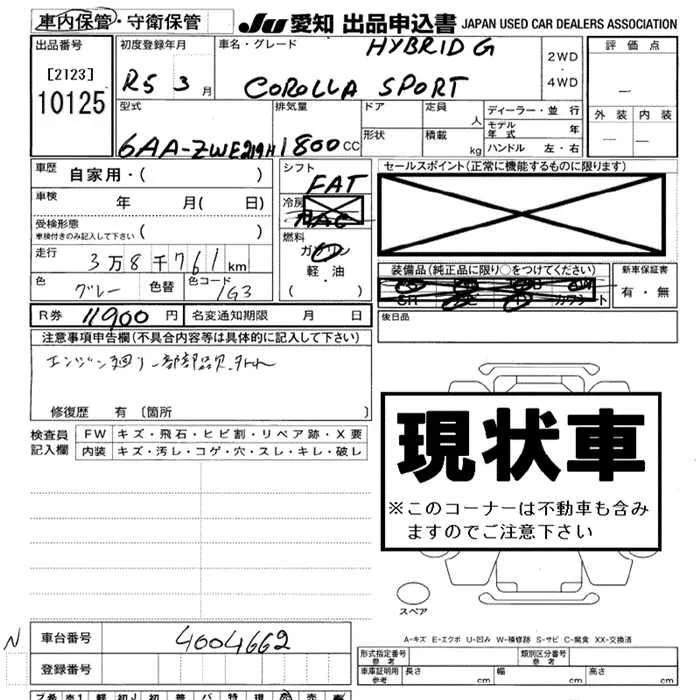 車内保管・守衛保管 JU 愛知 出品申込書 JAPAN USED CAR DEALERS ASSOCIATION
出品番号 初度登録年月 車名・グレード HYBRID G 2WD・4WD 評価点
[2123] R5 3月 COROLLA SPORT
10125
型式 排気量 ドア 定員 人 ディーラー・並行 外装 内装
6AA-ZWE219H 1800cc 形状 積載 kg モデル年式 年
ハンドル 左・右
車歴 自家用・( ) シフト FAT セールスポイント(正常に機能するものに限ります)
車検 年 月( 日) 冷房 AAC
受検形態 ( )
車検付きのみ記入して下さい
燃料 ガソリン
軽・油
( ・ )
走行 3万8千761km 装備品(純正品に限り○をつけてください) 新車保証書
色 グレー 色替 色コード 1G3 有・無
R券 11900円 名変通知期限 月 日 後日品
注意事項申告欄(不具合内容等は具体的に記入して下さい)
エンジン廻り一部部品欠
修復歴 有 [箇所 ]
検査員記入欄 FW キズ・飛石・ヒビ割・リペア跡・X要
内装 キズ・汚レ・コゲ・穴・スレ・キレ・破レ
現状車
※このコーナーは不動車も含み
ますのでご注意下さい
スペア
A-キズ E-エクボ U-凹み W-補修跡 S-サビ C-腐食 XX-交換済
N 車台番号 4004662
登録番号
形式指定番号 参考 類別区分番号 参考
車庫証明用 参考 長さ cm 幅 cm 高さ cm